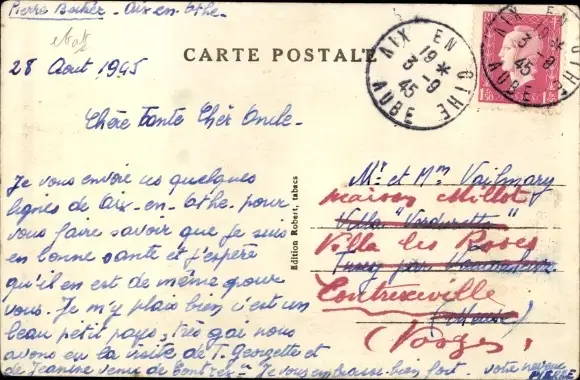 Pierre - Aix-en-Othe.
CARTE POSTALE
28 Aout 1945
AIX EN OTHE
19 *
3 - 9
45
AUBE
AIX EN OTHE
3 - 9
45
AUBE
Chère Tante Chèr Oncle -
Je vous envoie ces quelques
lignes de Aix-en-Othe pour
vous faire savoir que je suis
en bonne santé et j'espère
qu'il en est de même pour
vous. Je m'y plais bien c'est un
beau petit pays, très gai nous
avons eu la visite de T. Georgette et
de Jeanine venue de Contrex. Je vous embrasse bien fort. votre neveu
PIERRE
Edition Robert, tabacs
Mr et Mme Vailmary
maison Millot
Villa
Villa les Roses
par
Contrexeville
(Meuse)
(Vosges)